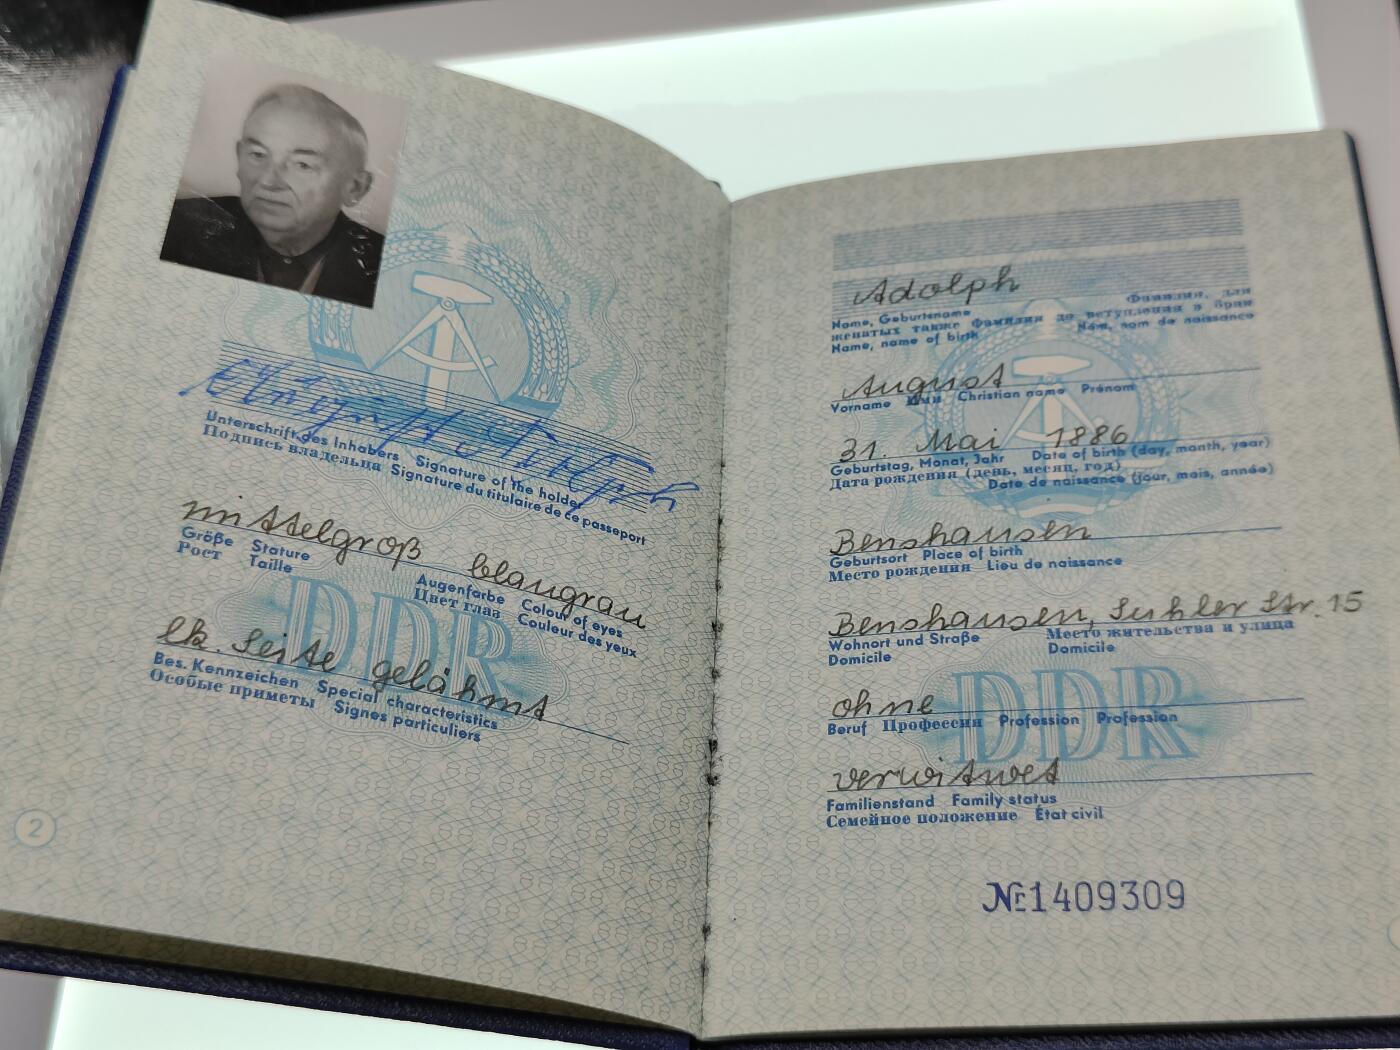 August Adolph
Unterschrift des Inhabers Signature of the holder
Подпись владельца Signature du titulaire de ce passeport
mittelgroß blaugrau
Größe Stature Augenfarbe Colour of eyes
Рост Taille Цвет глаз Couleur des yeux
lk. Seite gelähmt
Bes. Kennzeichen Special characteristics
Особые приметы Signes particuliers
DDR
2
Adolph
Name, Geburtsname Фамилия, для
женатых также фамилия до вступления в брак
Name, name of birth Nom, nom de naissance
August
Vorname Имя Christian name Prénom
31. Mai 1886
Geburtstag, Monat, Jahr Date of birth (day, month, year)
Дата рождения (день, месяц, год)
Date de naissance (jour, mois, année)
Benshausen
Geburtsort Place of birth
Место рождения Lieu de naissance
Benshausen, Suhler Str. 15
Wohnort und Straße Место жительства и улица
Domicile Domicile
ohne
Beruf Профессия Profession Profession
verwitwet
Familienstand Family status
Семейное положение État civil
DDR
№1409309